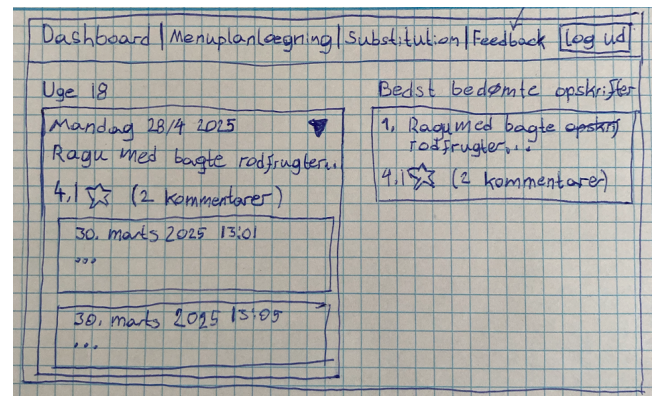 Dashboard | Menuplanlægning | Substitution | Feedback Log ud
Uge 18
Mandag 28/4 2025
Ragu med bagte rodfrugter...
4,1 (2 kommentarer)
30. marts 2025 13:01
...
30. marts 2025 13:05
...
Bedst bedømte opskrifter
1. Ragu med bagte
rodfrugter...
4,1 (2 kommentarer)